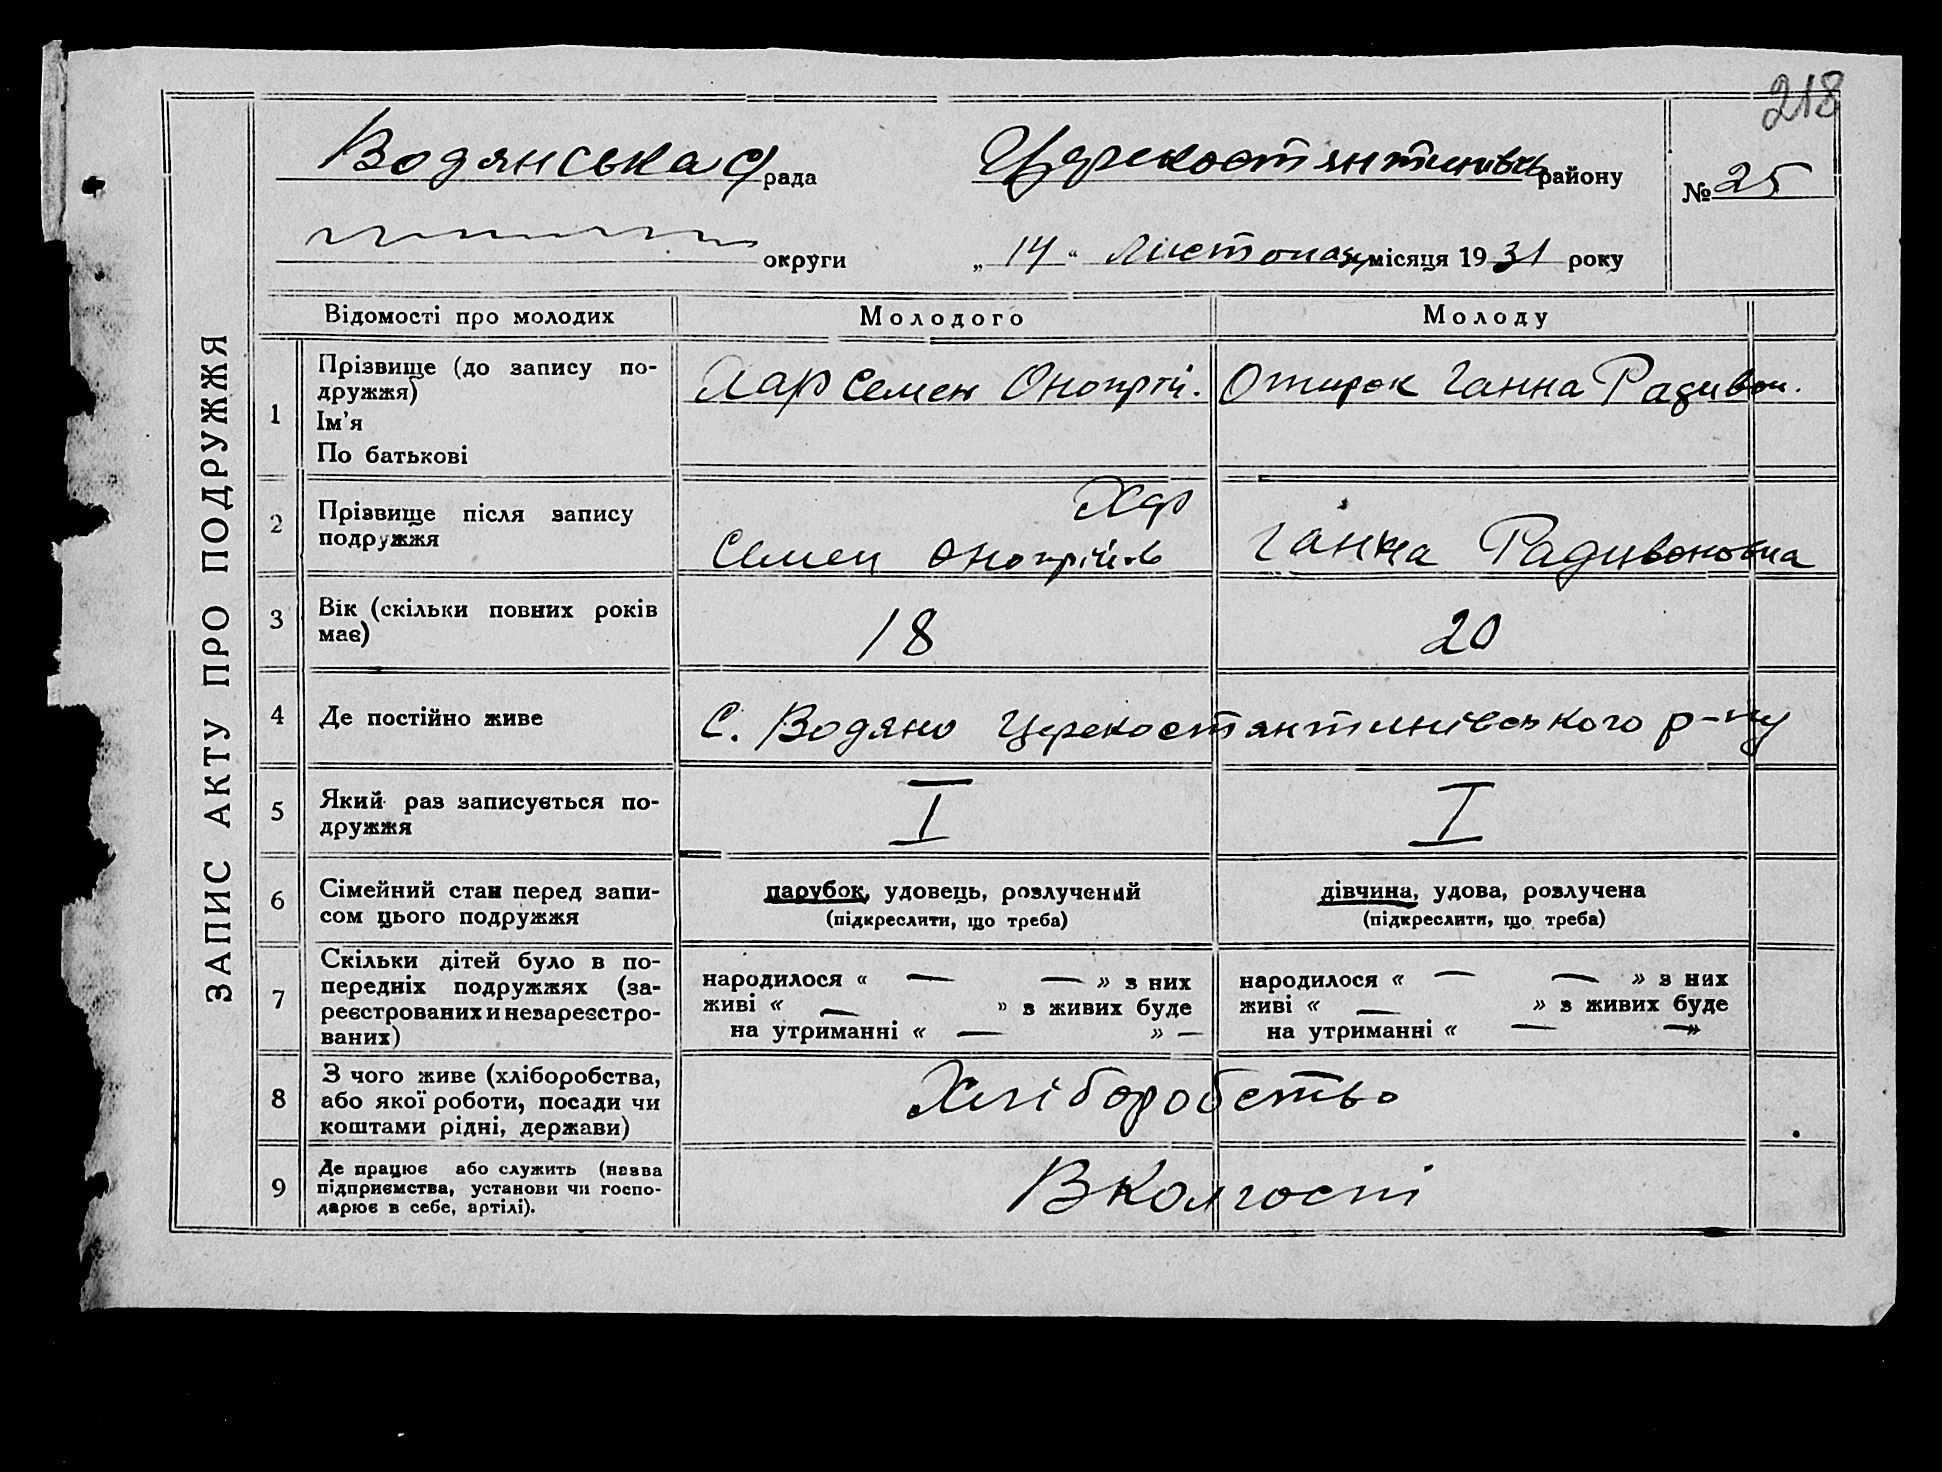 218
Водянська с/рада Церекостянтинівськ району № 25
округи „ 14 “ Листопаду місяця 19 31 року
ЗАПИС АКТУ ПРО ПОДРУЖЖЯ
Відомості про молодих Молодого Молоду
1 Прізвище (до запису по-
дружжя)
Ім'я
По батькові
Хар Семен Онопрій. Ганна Радивон.
2 Прізвище після запису
подружжя
Хар
Семен Онопрійов Ганна Радивоновна
3 Вік (скільки повних років
має)
18 20
4 Де постійно живе С. Водяно Церекостянтинівського р-ну
5 Який раз записується по-
дружжя
I I
6 Сімейний стан перед запи-
сом цього подружжя
парубок, удовець, розлучений
(підкреслити, що треба)
дівчина, удова, розлучена
(підкреслити, що треба)
7 Скільки дітей було в по-
передніх подружжях (за-
реєстрованих и незареєстро-
ваних)
народилося « — — » з них
живі « — » з живих буде
на утриманні « — » —
народилося « — — » з них
живі « — » з живих буде
на утриманні « — — »
8 З чого живе (хліборобства,
або якої роботи, посади чи
коштами рідні, держави)
Хліборобство
9 Де працює або служить (назва
підприємства, установи чи госпо-
дарює в себе, артілі).
В колгоспі